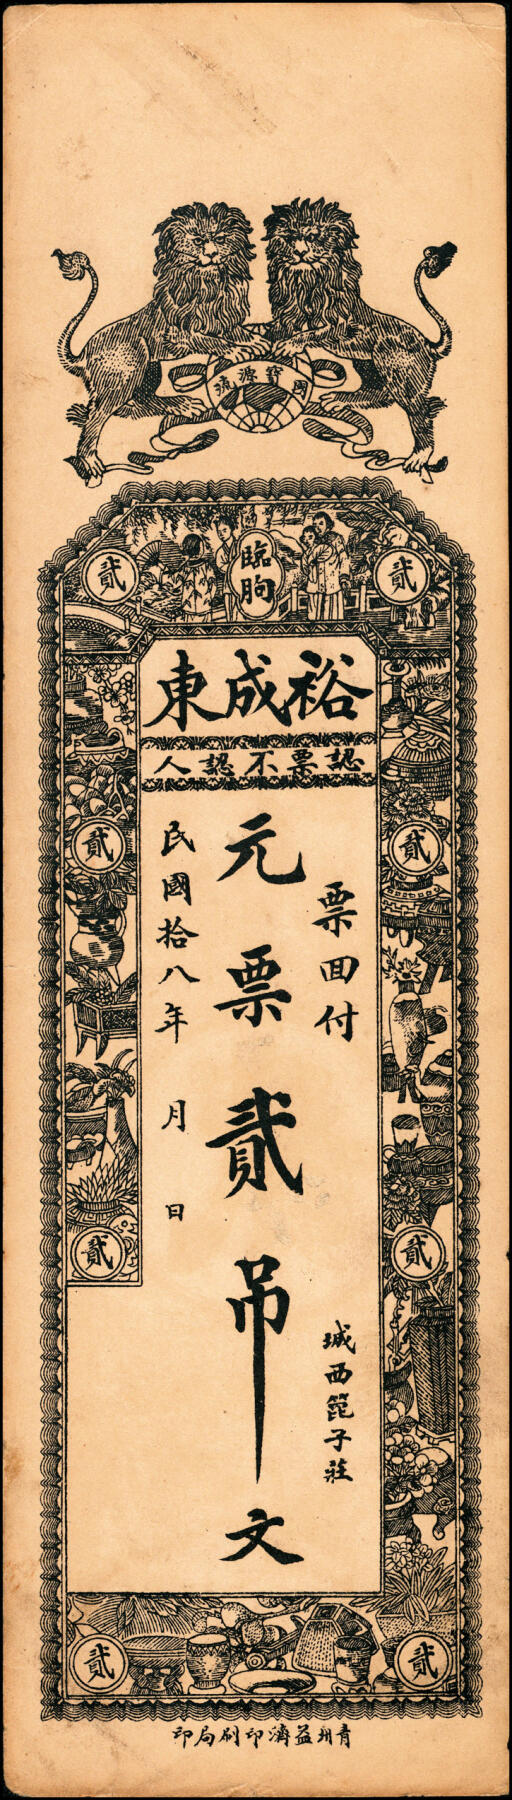 國寶源流
臨朐
貳 貳
裕成東
認票不認人
票回付
城西篦子莊
元票貳吊文
民國拾八年 月 日
貳 貳
貳 貳
貳 貳
青州益濟印刷局印